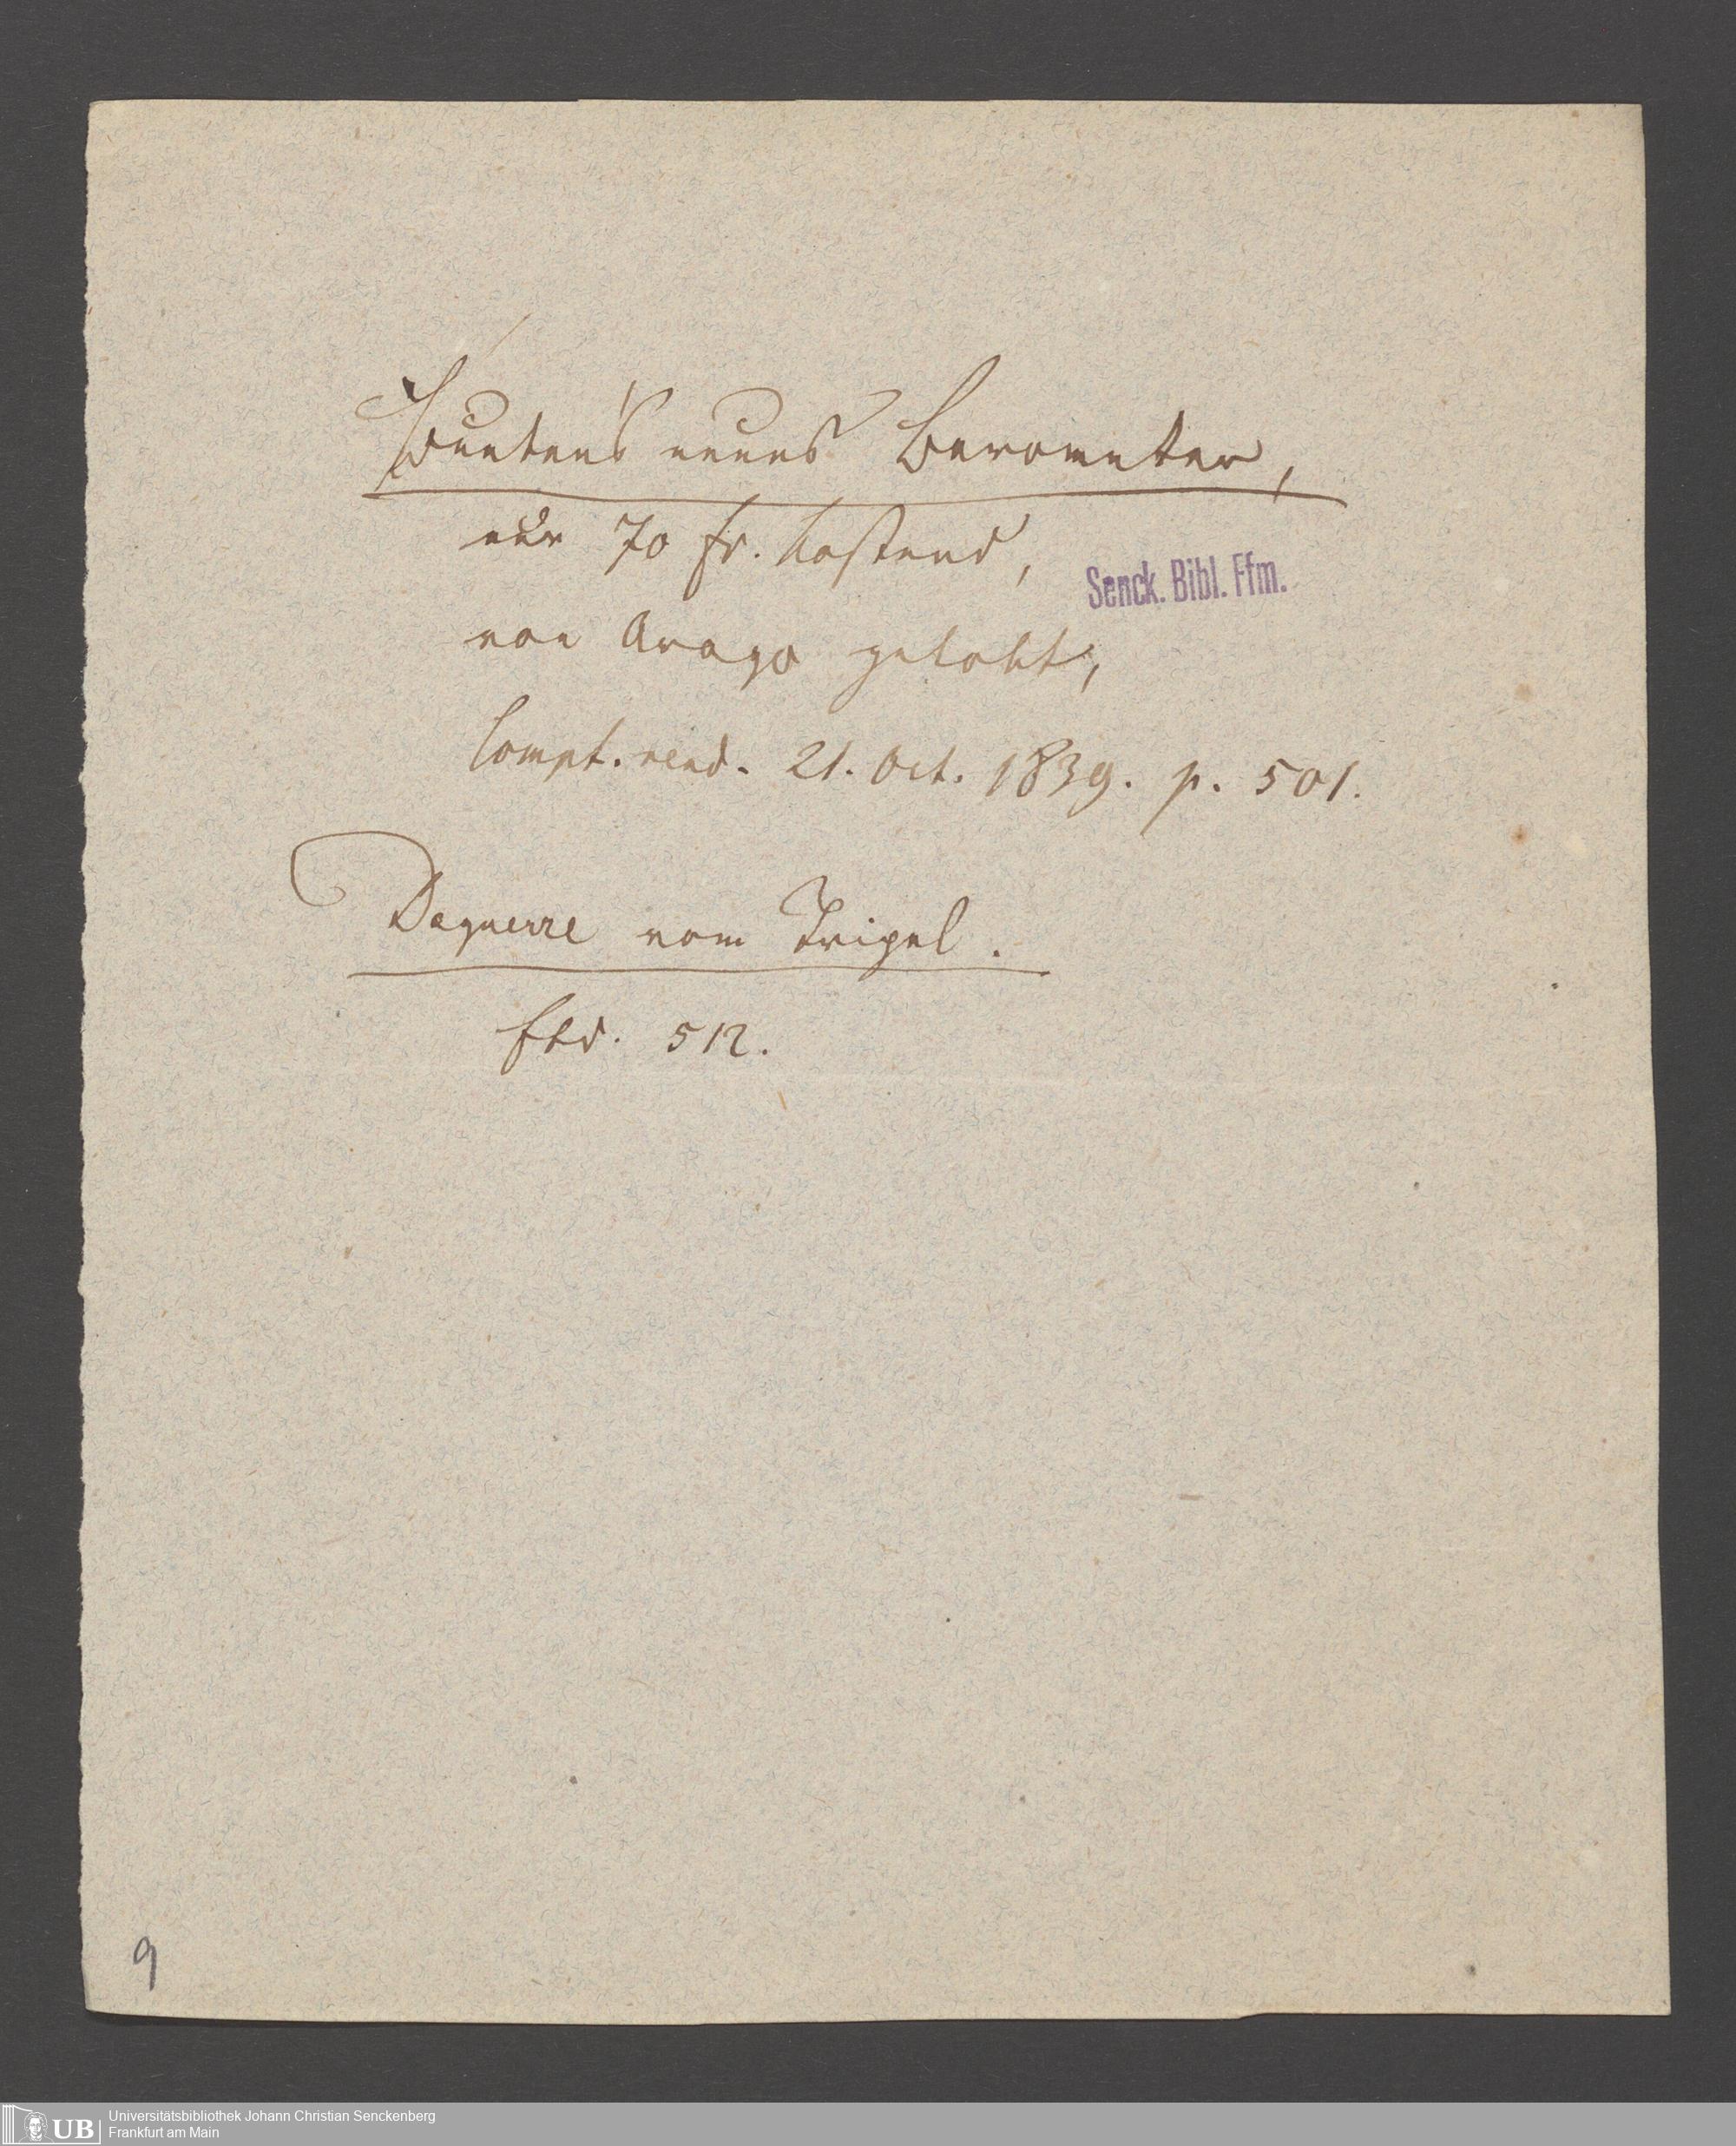 Bunten's neues Barometer,
nur 70 fr. kostend,
Senck. Bibl. Ffm.
von Arago gelobt,
Compt. rend. 21. Oct. 1839. p. 501.
Daguerre vom Tripel.
Ebd. 512.
9
UB
Universitätsbibliothek Johann Christian Senckenberg
Frankfurt am Main